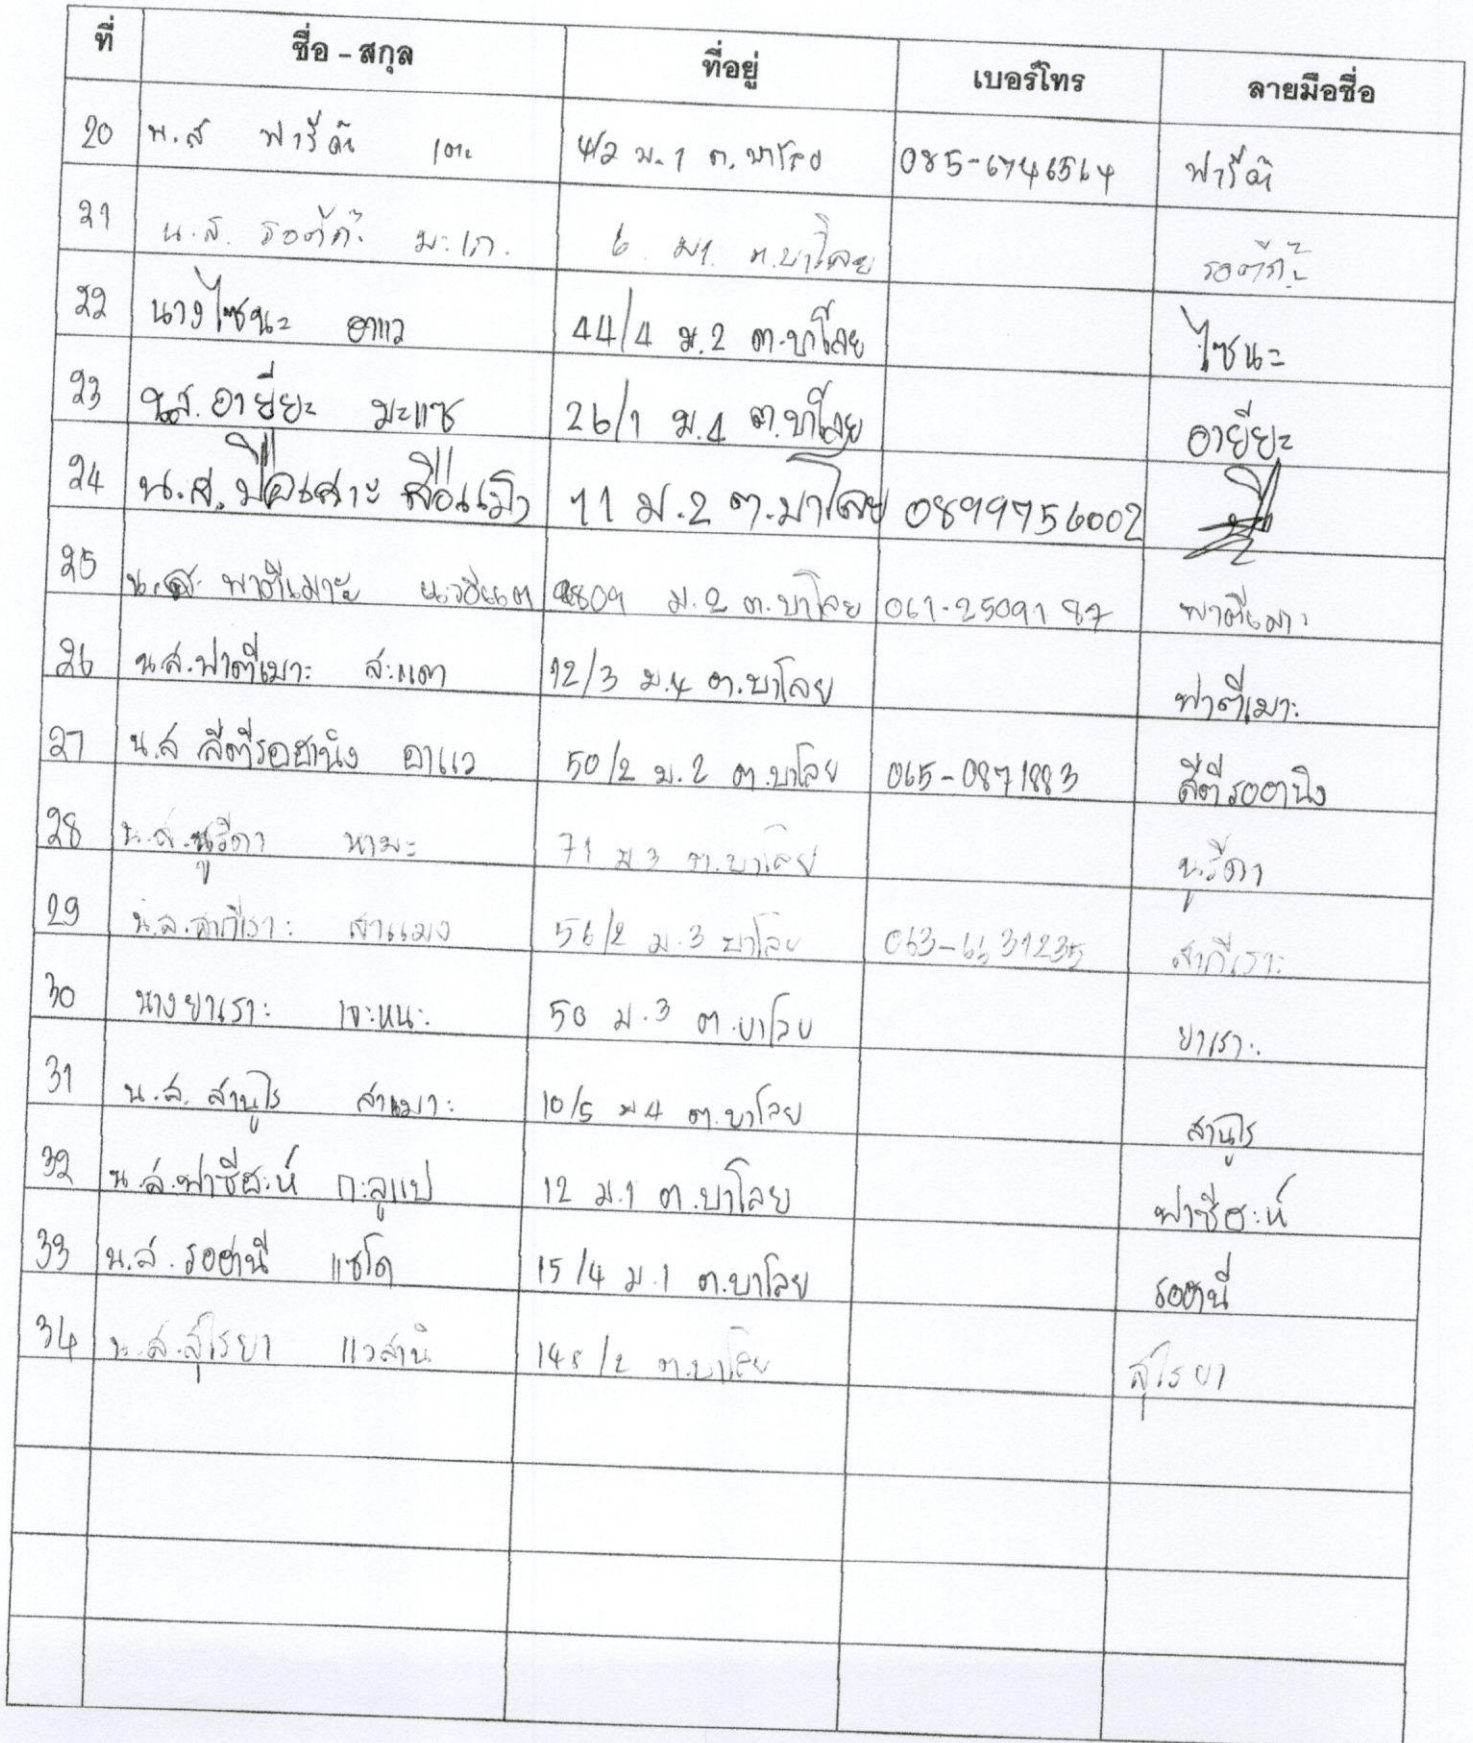 ที่ ชื่อ - สกุล ที่อยู่ เบอร์โทร ลายมือชื่อ
20 น.ส ฟารีด๊ะ เตะ 4/2 ม.1 ต.บาโลย 085-6746564 ฟารีด๊ะ
21 น.ส. มะเก 6 ม1 ต.บาโลย
22 นางไซนะ อาแว 44/4 ม.2 ต.บาโลย ไซนะ
23 น.ส. อายียะ มะแซ 26/1 ม.4 ต.บาโลย อายียะ
24 น.ส. 11 ม.2 ต.บาโลย 0899756002
25 น.ส. พาตีเมาะ ม.2 ต.บาโลย 061-2509187 พาตีเมาะ
26 น.ส.ฟาตีเมาะ สะแต 12/3 ม.4 ต.บาโลย ฟาตีเมาะ
27 น.ส สีตีรอฮานิง อาแว 50/2 ม.2 ต.บาโลย 065-0871883 สีตีรอฮานิง
28 น.ส.นูรีดา หามะ 71 ม3 ต.บาโลย นูรีดา
29 น.ส.สากีเราะ สาแมง 56/2 ม.3 บาโลย 063-6631235 สากีเราะ
30 นางยาเราะ เจะหนะ 50 ม.3 ต.บาโลย ยาเราะ
31 น.ส. สานูไร สาเมาะ 10/5 ม4 ต.บาโลย สานูไร
32 น.ส.ฟาซีฮะห์ กะลูแป 12 ม.1 ต.บาโลย ฟาซีฮะห์
33 น.ส. รอฮานี แซโด 15/4 ม.1 ต.บาโลย รอฮานี
34 น.ส.สุไรยา แวสานิ 148/2 ต.บาโลย สุไรยา